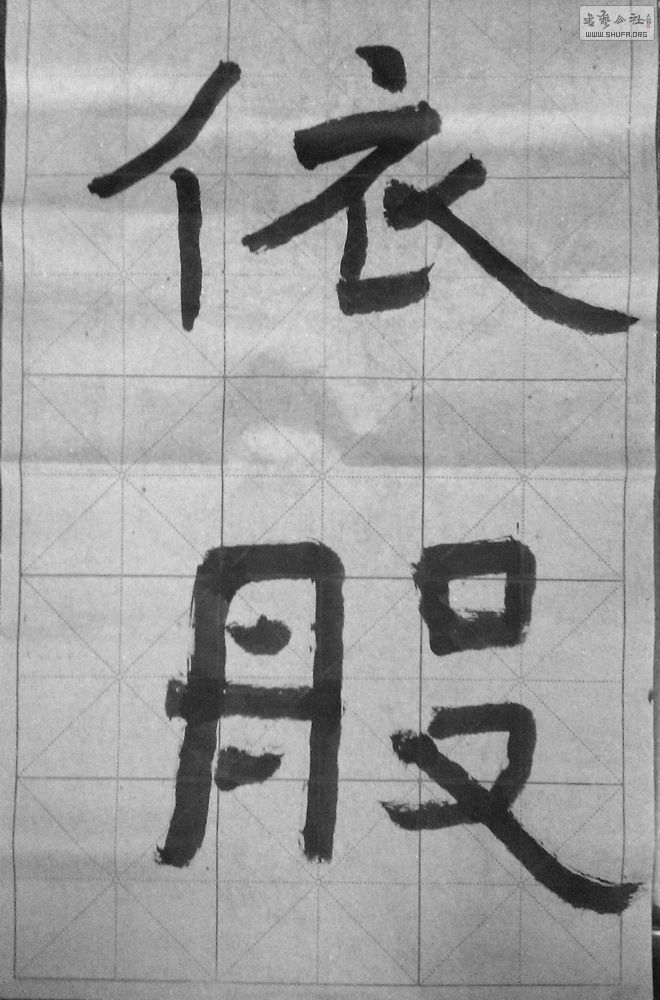 依
般
书艺公社
WWW.SHUFA.ORG